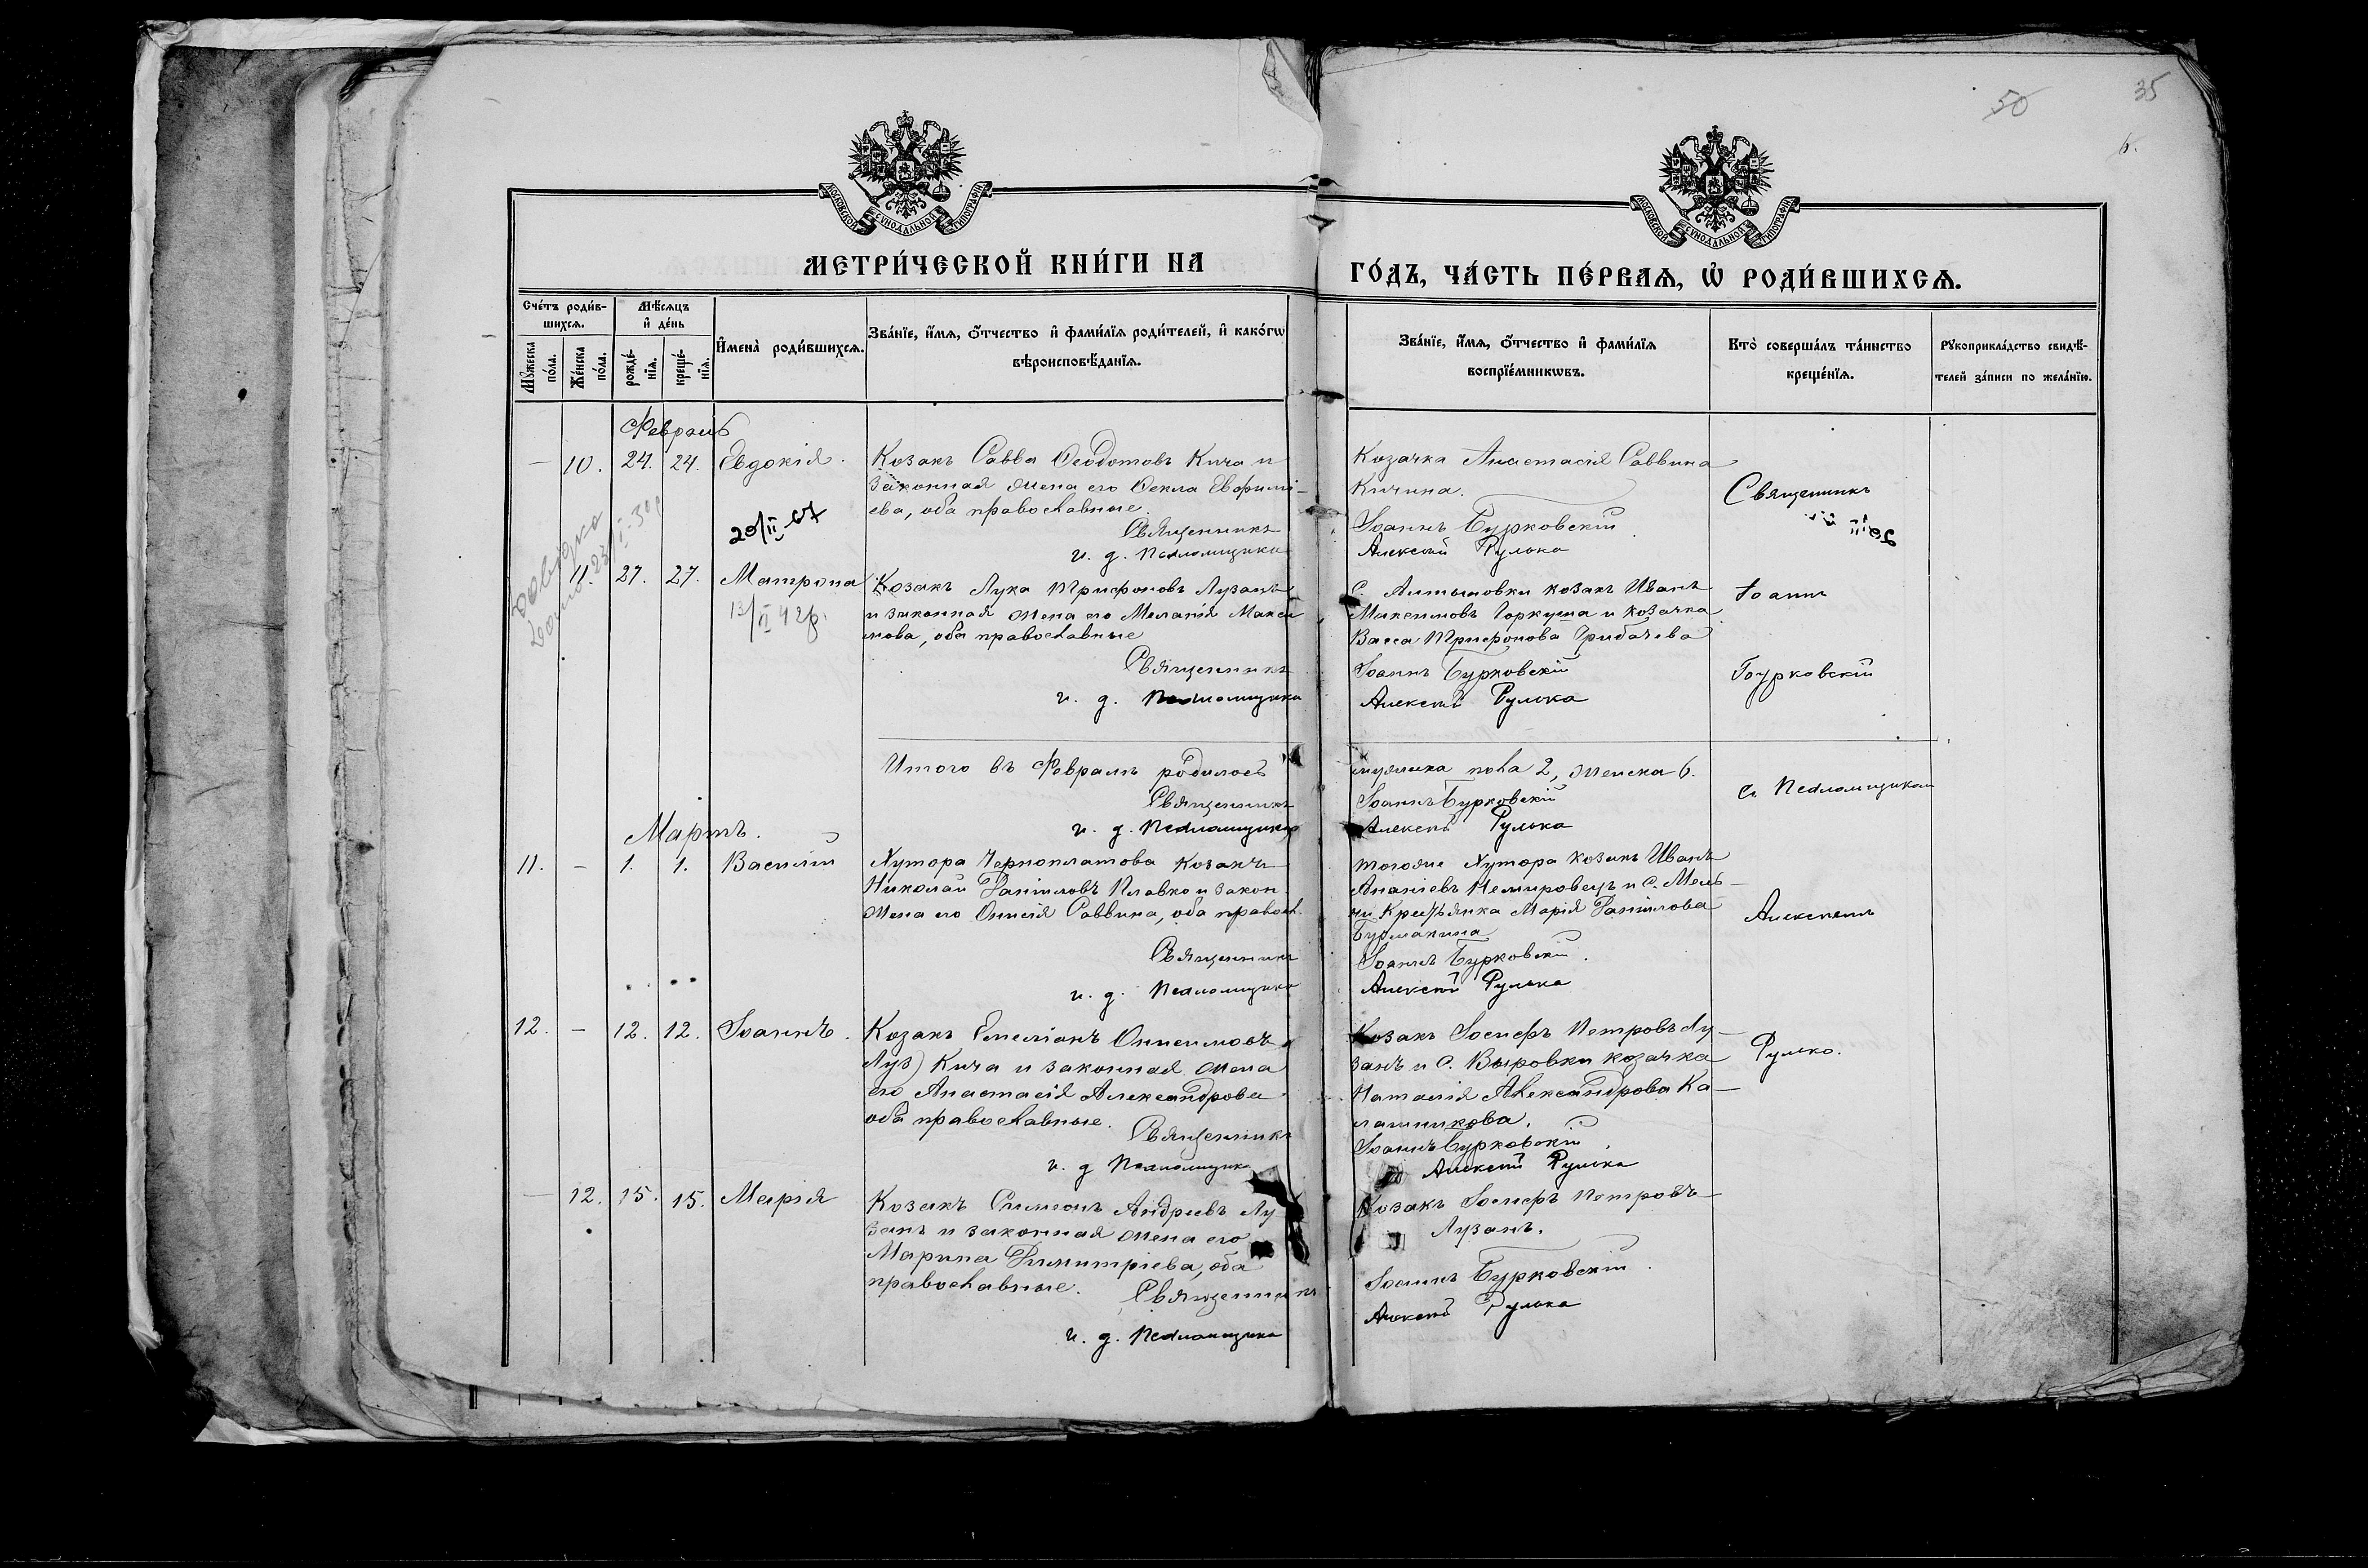 50
35
6.
МОСКОВСКОЙ СѴНОДАЛЬНОЙ ТИПОГРАФІИ
МОСКОВСКОЙ СѴНОДАЛЬНОЙ ТИПОГРАФІИ
МЕТРИ́ЧЕСКОЙ КНИ́ГИ НА
ГО́ДЪ, ЧА́СТЬ ПЕ́РВАѦ, Ѡ҆ РОДИ́ВШИХСѦ.
Сче́тъ роди́в-
шихсѧ.
Мѣ́сѧцъ
и҆ де́нь
Мꙋ́жеска
по́ла.
Же́нска
по́ла.
рожде́-
нїѧ.
креще́-
нїѧ.
И҆мена̀ роди́вшихсѧ.
Зва́нїе, и҆́мѧ, ѻ҆́тчество и҆ фами́лїѧ роди́телей, и҆ како́гѡ
вѣроисповѣ́данїѧ.
Зва́нїе, и҆́мѧ, ѻ҆́тчество и҆ фами́лїѧ
воспрїе́мникѡвъ.
Кто̀ соверша́лъ та́инство
креще́нїѧ.
Рꙋкоприкла́дство свидѣ́-
телей за́писи по жела́нїю.
Февраль
— 10. 24. 24. Евдокія.
Козакъ Савва Ѳеодотовъ Кича и
законная жена его Ѳекла Евфимі-
ева, оба православные.
Священникъ
и. д. Псаломщика
20/II 67
Козачка Анастасія Саввина
Кичина.
Іоаннъ Бурковскій
Алексѣй Рулька
Священникъ
11. 27. 27. Матрона
13/II 42р.
Козакъ Лука Трифоновъ Лузанъ
и законная жена его Меланія Макси
мова, оба православные
Священникъ
и. д. Псаломщика
С. Алтыновки козакъ Иванъ
Максимовъ Горкуша и козачка
Васса Трифонова Грибачева
Іоаннъ Бурковскій
Алексѣй Рулька
Іоаннъ
Бурковскій
Итого въ Февралѣ родилось
мужска пола 2, женска 6.
Священникъ
Іоаннъ Бурковскій
и. д. Псаломщика
Алексѣй Рулька
съ Псаломщикомъ
Мартъ.
11. — 1. 1. Василій
Хутора Черноплатова козакъ
Николай Даніиловъ Плавко и закон.
жена его Онисія Саввина, оба правосл.
Священникъ
и. д. Псаломщика
тогоже Хутора козакъ Иванъ
Ананіевъ Немировецъ и С. Мель-
ни Крестьянка Марія Даніилова
Бурмакина
Іоаннъ Бурковскій.
Алексѣй Рулька
Алексѣемъ
12. — 12. 12. Іоаннъ.
Козакъ Емеліанъ Онисимовъ
Луз) Кича и законная жена
его Анастасія Александрова
оба православные.
Священникъ
и. д Псаломщика
Козакъ Іосифъ Петровъ Лу-
занъ и С. Выровки козачка
Наталія Александрова Ка-
лашникова.
Іоаннъ Бурковскій.
Алексѣй Рулька
Рулько.
— 12. 15. 15. Марія
Козакъ Симеонъ Андреевъ Лу
занъ и законная жена его
Марина Димитріева, оба
православные.
Священникъ
и. д. Псаломщика
Козакъ Іосифъ Петровъ
Лузанъ.
Іоаннъ Бурковскій.
Алексѣй Рулька